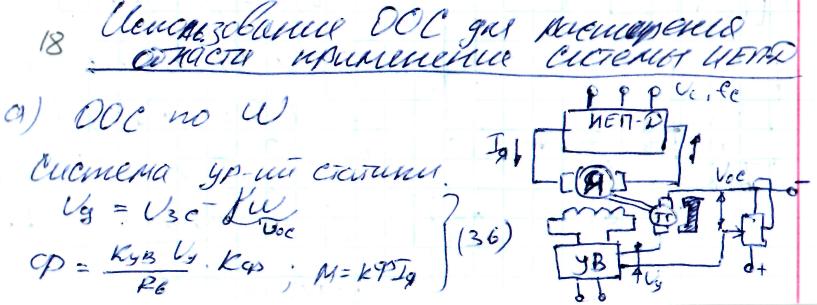 18 Использование ООС для расширения
области применение системы ИЕП-Д
а) ООС по W
Система ур-ий статики.
Uу = Uзс - γW
Uос
Ф = Kув Uу / Rв · Kф ; M = kФIя } (36)
Uс, fс
ИЕП-Д
Iя
Я
Uзс
ТГ
УВ
Uу
- +